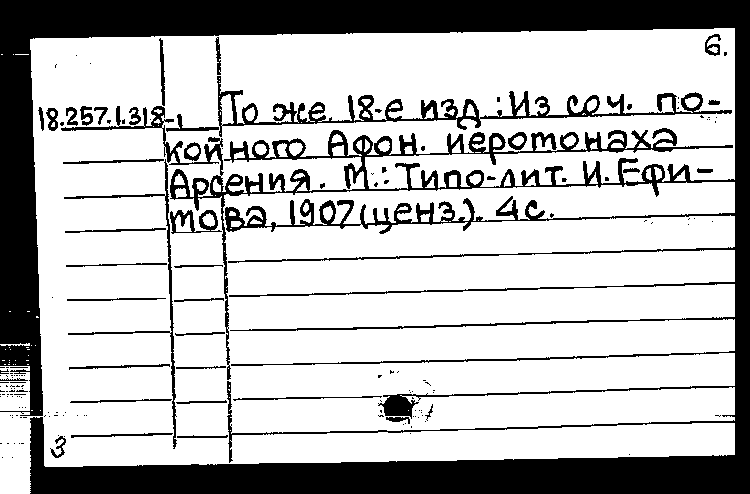 6.
18.257.1.318-1 То же. 18-е изд.: Из соч. по-
койного Афон. иеромонаха
Арсения. М.: Типо-лит. И. Ефи-
мова, 1907 (ценз.). 4с.
3